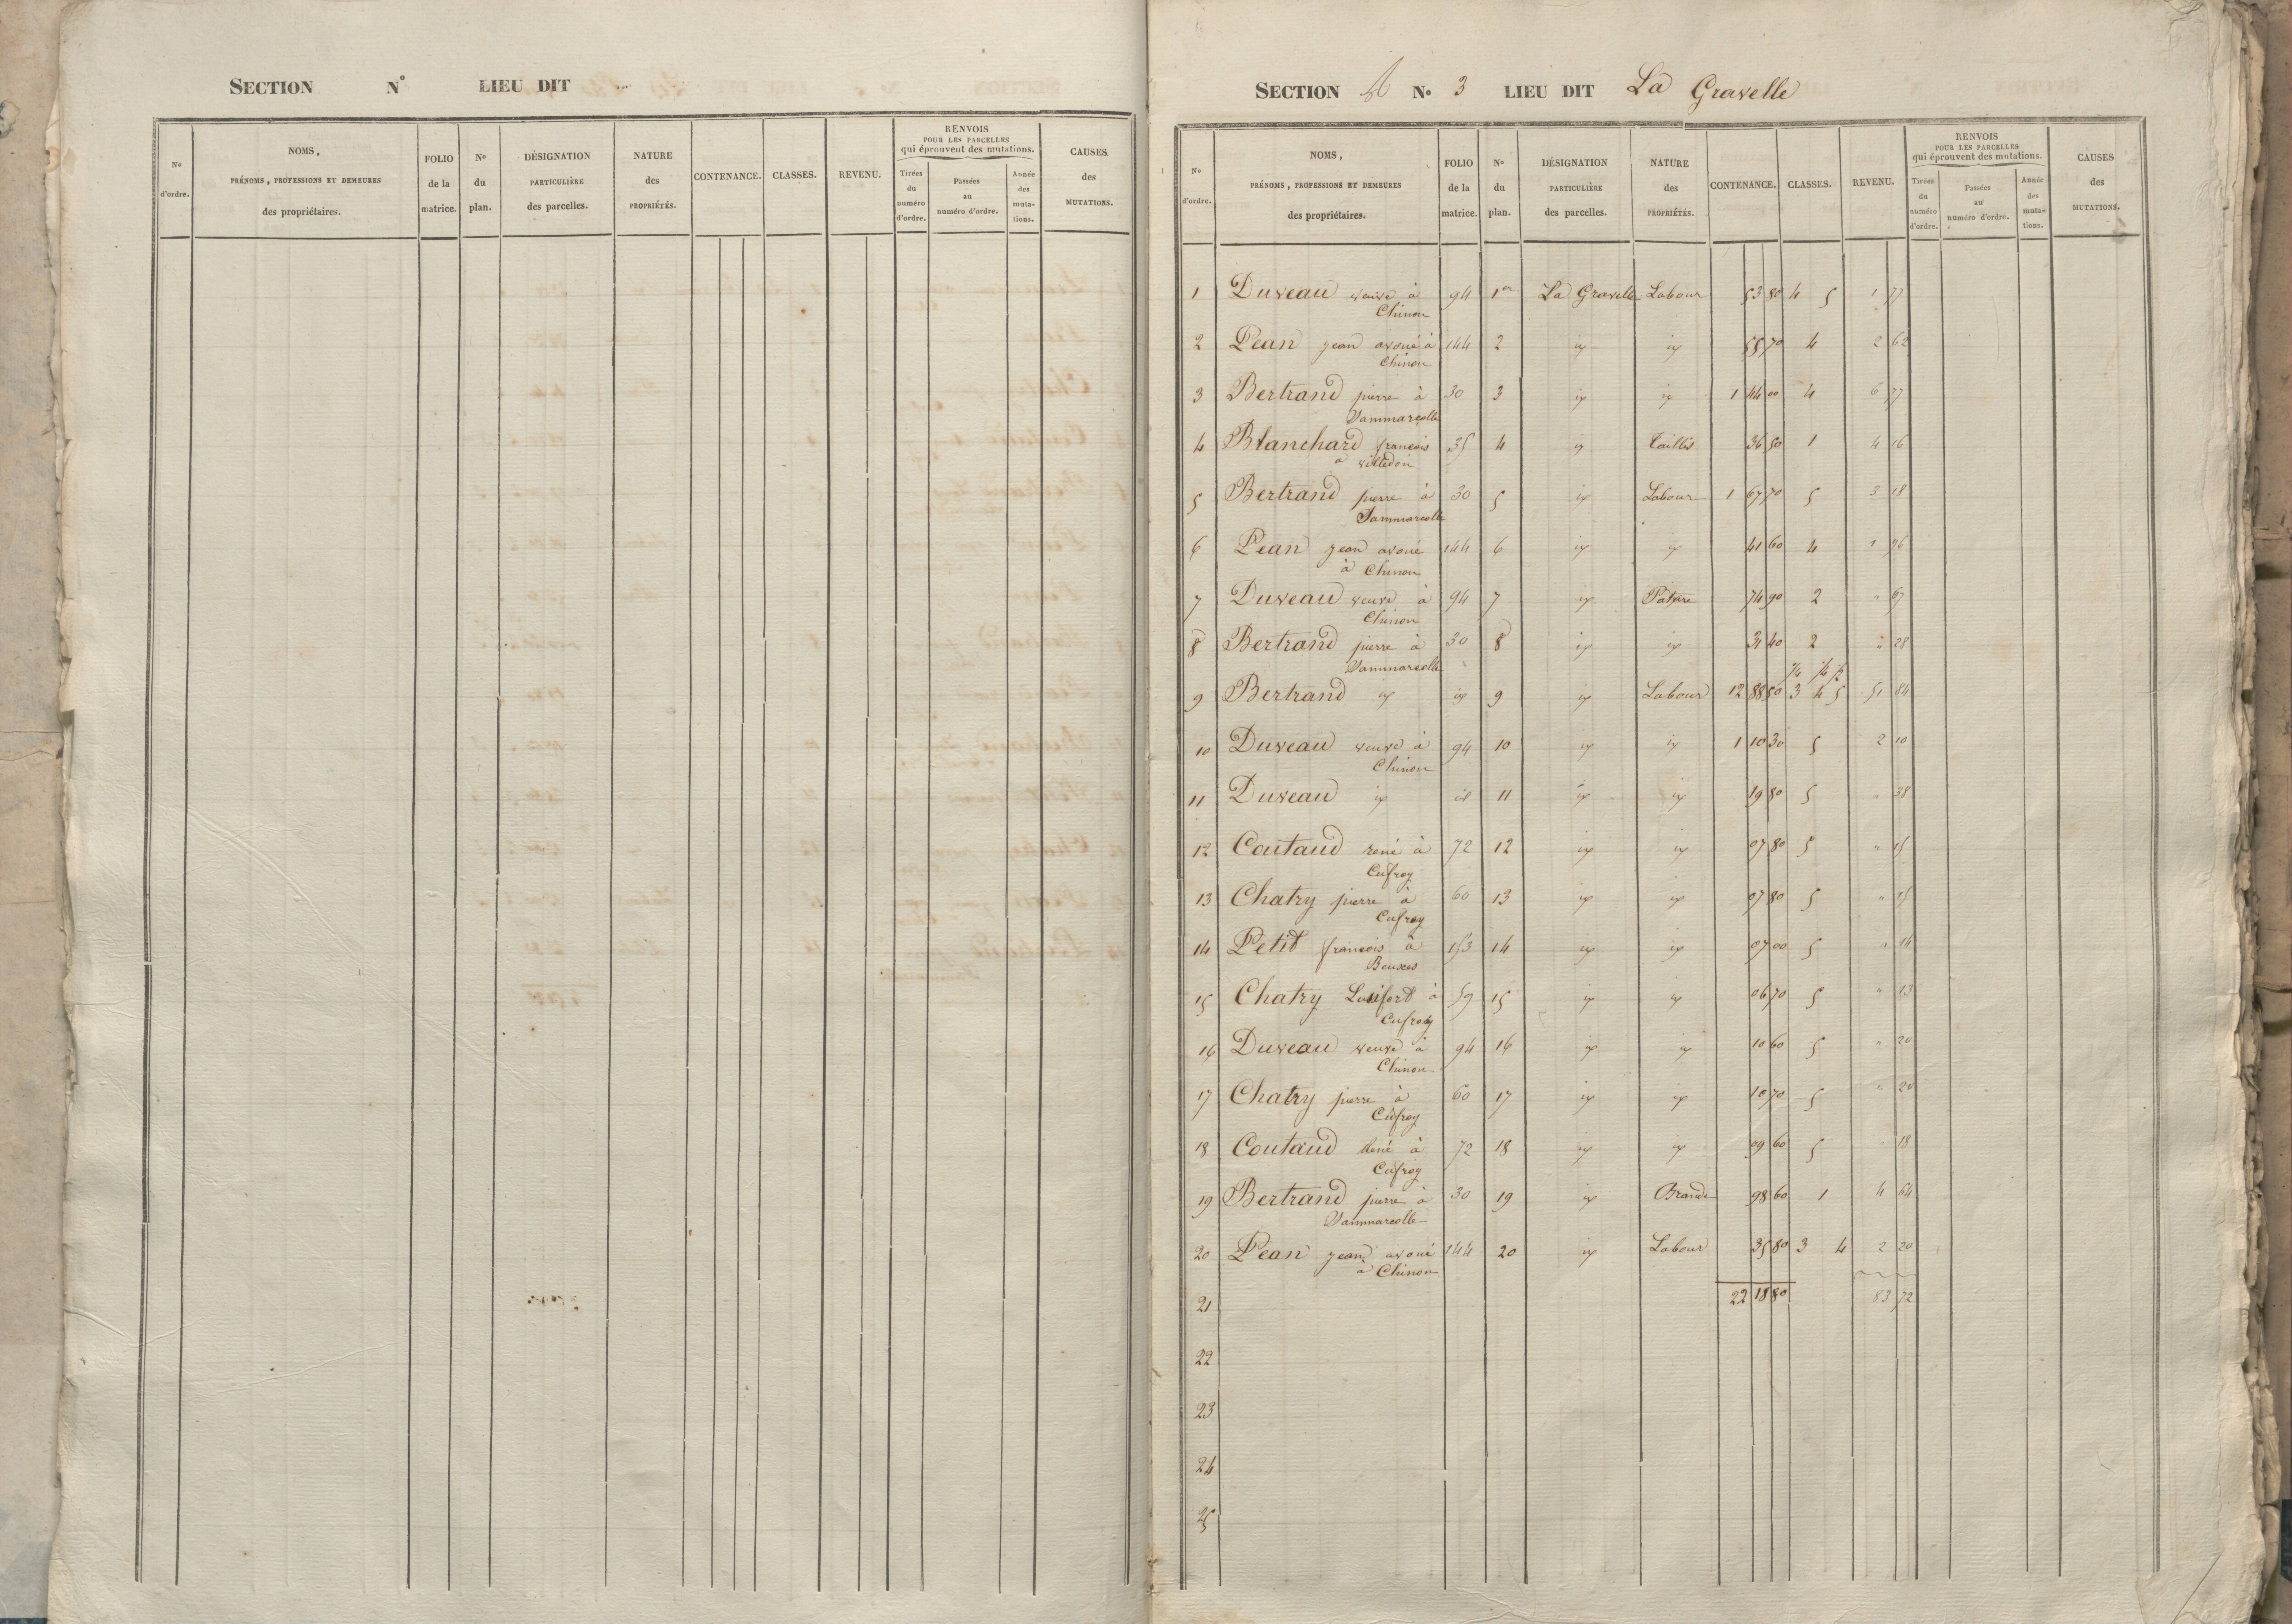 SECTION N° LIEU DIT
N° d'ordre.
NOMS, PRÉNOMS, PROFESSIONS ET DEMEURES des propriétaires.
FOLIO de la matrice.
N° du plan.
DÉSIGNATION PARTICULIÈRE des parcelles.
NATURE des PROPRIÉTÉS.
CONTENANCE.
CLASSES.
REVENU.
RENVOIS POUR LES PARCELLES qui éprouvent des mutations.
Tirées du numéro d'ordre.
Passées au numéro d'ordre.
Année des mutations.
CAUSES des MUTATIONS.
SECTION N° 3 LIEU DIT La Gravelle
N° d'ordre.
NOMS, PRÉNOMS, PROFESSIONS ET DEMEURES des propriétaires.
FOLIO de la matrice.
N° du plan.
DÉSIGNATION PARTICULIÈRE des parcelles.
NATURE des PROPRIÉTÉS.
CONTENANCE.
CLASSES.
REVENU.
RENVOIS POUR LES PARCELLES qui éprouvent des mutations.
Tirées du numéro d'ordre.
Passées au numéro d'ordre.
Année des mutations.
CAUSES des MUTATIONS.
1 Duveau veuve à 94 1er La Gravelle Labour 53 80 4 5 1 77
Chinon
2 Pean jean avoué à 144 2 id id 55 70 4 2 62
Chinon
3 Bertrand pierre à 30 3 id id 1 44 00 4 6 77
Sammarcolle
4 Blanchard francois 35 4 id Taillis 36 50 1 4 16
à villedon
5 Bertrand pierre à 30 5 id Labour 1 67 70 5 3 18
Sammarcolle
6 Pean jean avoué 144 6 id id 41 60 4 1 96
à Chinon
7 Duveau veuve à 94 7 id Pature 74 90 2 " 67
Chinon
8 Bertrand pierre à 30 8 id id 31 40 2 " 28
Sammarcolle
1/4 1/4 1/2
9 Bertrand id id 9 id Labour 12 88 50 3 4 5 51 84
10 Duveau veuve à 94 10 id id 1 10 30 5 2 10
Chinon
11 Duveau id id 11 id id 19 80 5 " 38
12 Coutaud rené à 72 12 id id 07 80 5 " 15
Cufroy
13 Chatry pierre à 60 13 id id 07 80 5 " 15
Cufroy
14 Petit francois à 153 14 id id 07 00 5 " 14
Beuxes
15 Chatry à 59 15 id id 06 70 5 " 13
Cufroy
16 Duveau veuve à 94 16 id id 10 60 5 " 20
Chinon
17 Chatry pierre à 60 17 id id 10 70 5 " 20
Cufroy
18 Coutaud rené à 72 18 id id 09 60 5 18
Cufroy
19 Bertrand pierre à 30 19 id Brande 98 60 1 4 64
Sammarcolle
20 Pean jean avoué 144 20 id Labour 35 80 3 4 2 20
à Chinon
21 22 18 80 83 72
22
23
24
25